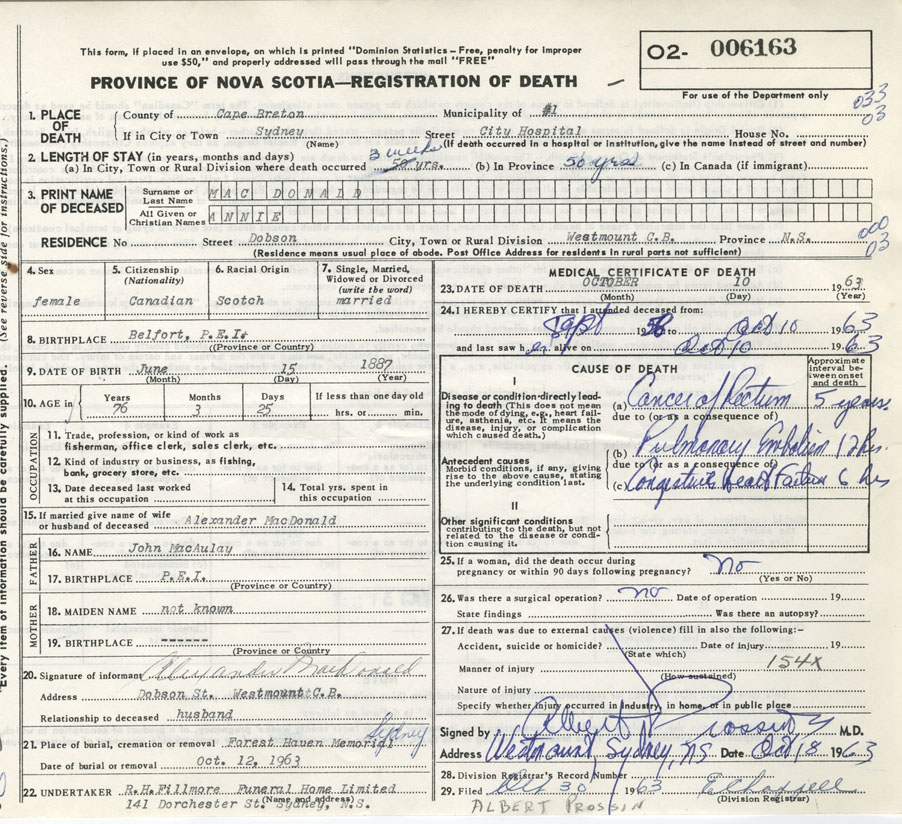 This form, if placed in an envelope, on which is printed "Dominion Statistics – Free, penalty for improper
use $50," and properly addressed will pass through the mail "FREE"
O2- 006163
PROVINCE OF NOVA SCOTIA—REGISTRATION OF DEATH
For use of the Department only
033
03
1. PLACE OF DEATH
County of Cape Breton Municipality of #1
If in City or Town Sydney Street City Hospital House No.
(Name) (If death occurred in a hospital or institution, give the name instead of street and number)
2. LENGTH OF STAY (in years, months and days)
(a) In City, Town or Rural Division where death occurred 3 weeks 50 yrs. (b) In Province 50 yrs (c) In Canada (if immigrant)
3. PRINT NAME OF DECEASED
Surname or Last Name MAC DONALD
All Given or Christian Names ANNIE
000
03
RESIDENCE No Street Dobson City, Town or Rural Division Westmount C.B. Province N.S.
(Residence means usual place of abode. Post Office Address for residents in rural parts not sufficient)
4. Sex female
5. Citizenship (Nationality) Canadian
6. Racial Origin Scotch
7. Single, Married, Widowed or Divorced (write the word) married
8. BIRTHPLACE Belfort, P.E.I.
(Province or Country)
9. DATE OF BIRTH June 15 1887
(Month) (Day) (Year)
10. AGE in Years 76 Months 3 Days 25 If less than one day old
hrs. or min.
OCCUPATION
11. Trade, profession, or kind of work as
fisherman, office clerk, sales clerk, etc.
12. Kind of industry or business, as fishing,
bank, grocery store, etc.
13. Date deceased last worked at this occupation
14. Total yrs. spent in this occupation
15. If married give name of wife or husband of deceased Alexander MacDonald
FATHER
16. NAME John MacAulay
17. BIRTHPLACE P.E.I.
(Province or Country)
MOTHER
18. MAIDEN NAME not known
19. BIRTHPLACE ------
(Province or Country)
20. Signature of informant Alexander MacDonald
Address Dobson St. Westmount C.B.
Relationship to deceased husband
21. Place of burial, cremation or removal Forest Haven Memorial Sydney
Date of burial or removal Oct. 12, 1963
22. UNDERTAKER R.H.Fillmore Funeral Home Limited
(Name and address)
141 Dorchester St. Sydney, N.S.
MEDICAL CERTIFICATE OF DEATH
23. DATE OF DEATH OCTOBER 10 1963
(Month) (Day) (Year)
24. I HEREBY CERTIFY that I attended deceased from:
Sept 1956 to Oct 10 1963
and last saw her alive on Oct 10 1963
CAUSE OF DEATH
Approximate interval between onset and death
I
Disease or condition-directly leading to death (This does not mean the mode of dying, e.g., heart failure, asthenia, etc. It means the disease, injury, or complication which caused death.)
(a) Cancer of Rectum 5 years
due to (or as a consequence of)
Antecedent causes
Morbid conditions, if any, giving rise to the above cause, stating the underlying condition last.
(b) Pulmonary Embolism 12 hrs.
due to (or as a consequence of)
(c) Congestive Heart Failure 6 hrs
II
Other significant conditions
contributing to the death, but not related to the disease or condition causing it.
25. If a woman, did the death occur during
pregnancy or within 90 days following pregnancy? no
(Yes or No)
26. Was there a surgical operation? no Date of operation 19
State findings Was there an autopsy?
27. If death was due to external causes (violence) fill in also the following:–
Accident, suicide or homicide? Date of injury 19
(State which)
Manner of injury 154X
(How sustained)
Nature of injury
Specify whether injury occurred in industry, in home, or in public place
Signed by Albert Prossin M.D.
Address Westmount, Sydney, N.S. Date Oct 18 1963
28. Division Registrar's Record Number
29. Filed Oct 30 1963
(Division Registrar)
ALBERT PROSSIN
(See reverse side for instructions.)
"Every item of information should be carefully supplied.